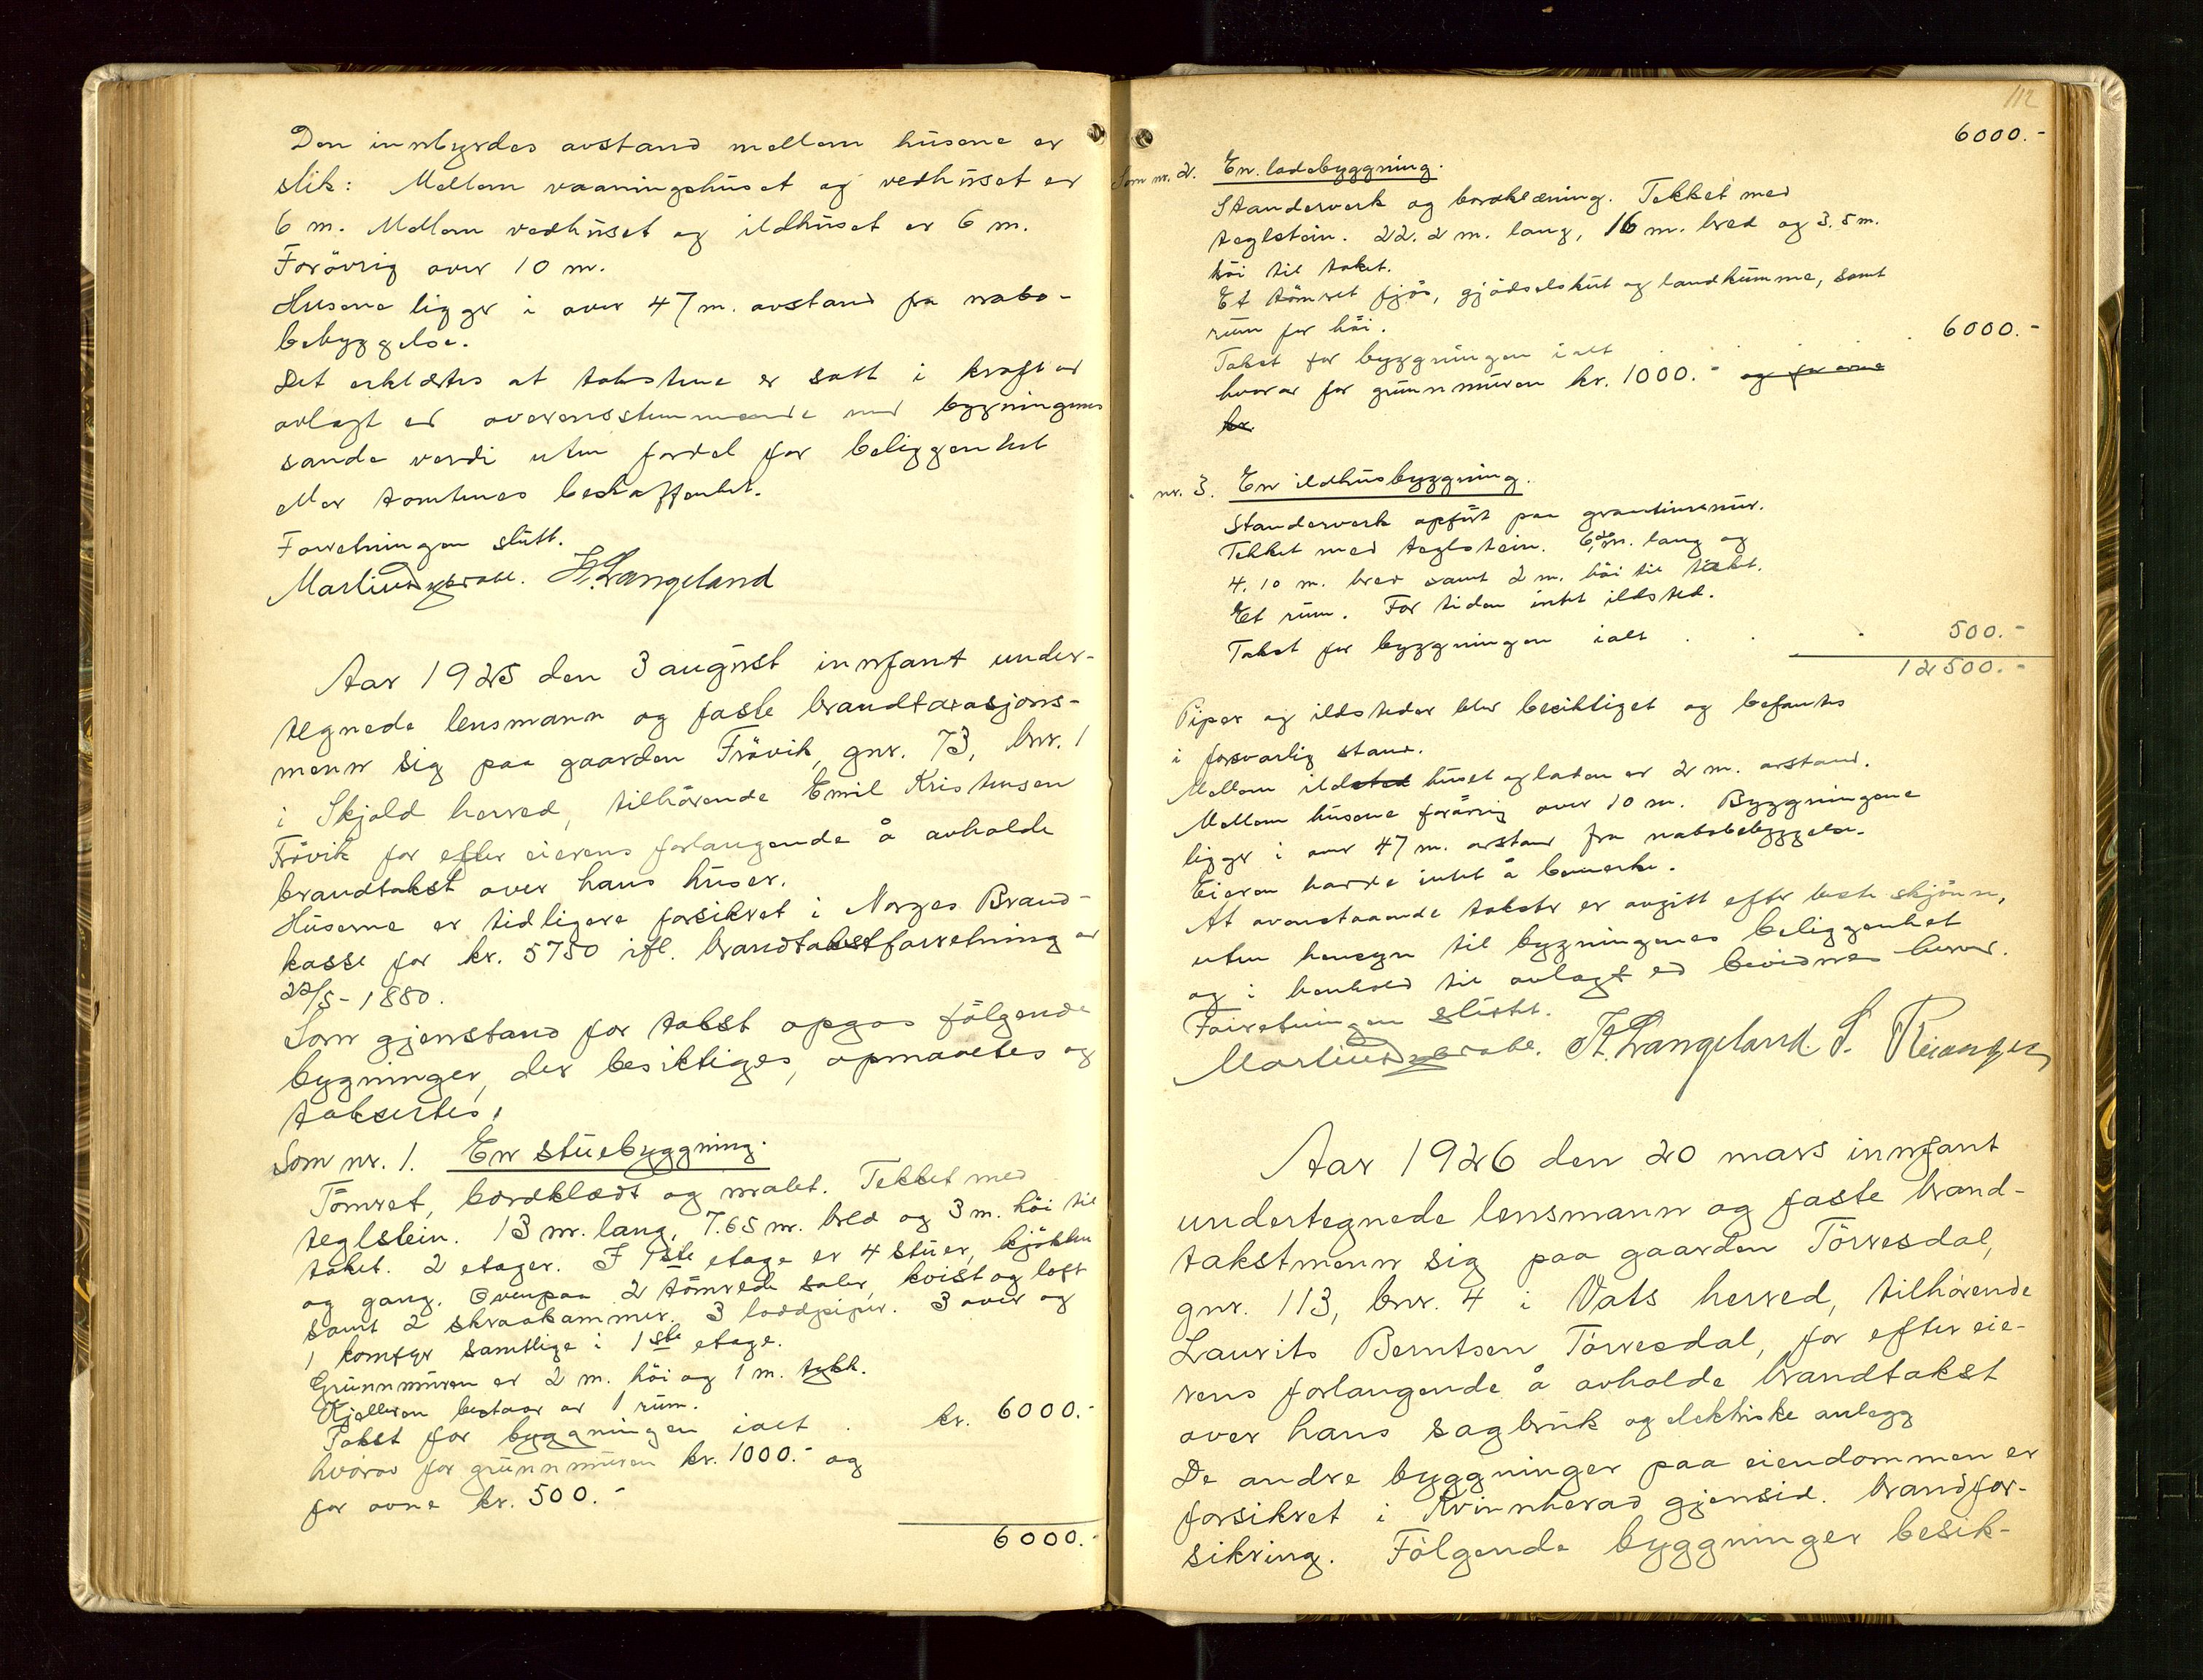 Den innbyrdes avstand mellem husene er
slik: Mellem vaaningshuset og vedhuset er
6 m. Mellem vedhuset og ildhuset er 6 m.
Forövrig over 10 m.
Husene ligger i over 47 m. avstand fra nabo-
bebyggelse.
Det erklæres at takstene er satt i kraft av
avlagt ed overensstemmende med bygningenes
sande verdi uten fordel for beliggenhet
eller tomtenes beskaffenhet.
Forretningen slutt.
H. Langeland
Aar 1925 den 3 august innfant under-
tegnede lensmann og faste brandtaxasjons-
menn sig paa gaarden Frövik, gnr. 73, bnr. 1
i Skjold herred, tilhörende Emil Kristensen
Frövik for efter eierens forlangende å avholde
brandtakst over hans huser.
Huserne er tidligere forsikret i Norges Brand-
kasse for kr. 5750 ifl. brandtakstforretning av
22/5 - 1880.
Som gjenstand for takst opgas fölgende
bygninger, der besiktiges, opmaaltes og
taksertes:
Som nr. 1. En stuebyggning.
Tömret, bordklædt og malet. Tekket med
teglstein. 13 m. lang, 7.65 m. bred og 3 m. höi til
taket. 2 etager. I 1ste etage er 4 stuer, kjökken
og gang. Ovenpaa 2 tömrede saler, kvist og loft
samt 2 skraakammer. 3 loddpiper. 3 over og
1 komfyr samtlige i 1ste etage.
Grunnmuren er 2 m. höi og 1 m. tykk.
Kjelleren bestaar av 1 rum.
Takst for byggningen ialt . kr. 6000.-
hvorav for grunnmuren kr. 1000.- og
for ovne kr. 500.-
6000.-
112
6000.-
Som nr. 2. En ladebyggning.
Standerverk og bordklæning. Tekket med
teglstein. 22.2 m. lang, 16 m. bred og 3.5 m.
höi til taket.
Et tömret fjös, gjödselskut og landkumme, samt
rum for höi.
Takst for byggningen ialt . . . 6000.-
hvorav for grunnmuren kr. 1000.- og for ovne
kr.
" nr. 3. En ildhusbyggning.
Standerverk opfört paa graasteinsmur.
Tekket med teglstein. m. lang og
4.10 m. bred samt 2 m. höi til taket.
Et rum. For tiden intet ildsted.
Takst for byggningen ialt . . . 500.-
12500.-
Piper og ildsteder blev besiktiget og befantes
i forsvarlig stand.
Mellem ildsted huset og laden er 2 m. avstand.
Mellem husene forövrig over 10 m. Byggningene
ligger i over 47 m. avstand fra nabobebyggelse.
Eieren hadde intet å bemerke.
At ovenstaaende takster er avgitt efter beste skjönn,
uten hensyn til bygningenes beliggenhet
og i henhold til avlagt ed bevidnes herved.
Forretningen sluttet.
H. Langeland.
Aar 1926 den 20 mars innfant
undertegnede lensmann og faste brand-
takstmenn sig paa gaarden Törresdal,
gnr. 113, bnr. 4 i Vats herred, tilhörende
Laurits Berntsen Törresdal, for efter eie-
rens forlangende å avholde brandtakst
over hans sagbruk og elektriske anlegg
De andre byggninger paa eiendommen er
forsikret i Kvinnherad gjensid. brandfor-
sikring. Fölgende byggninger besik-